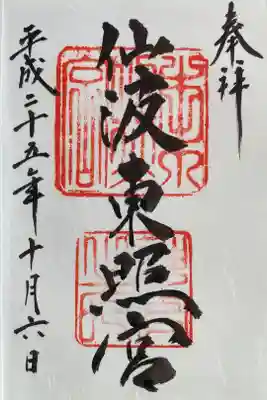 奉拝
仙波東照宮
平成二十五年十月六日